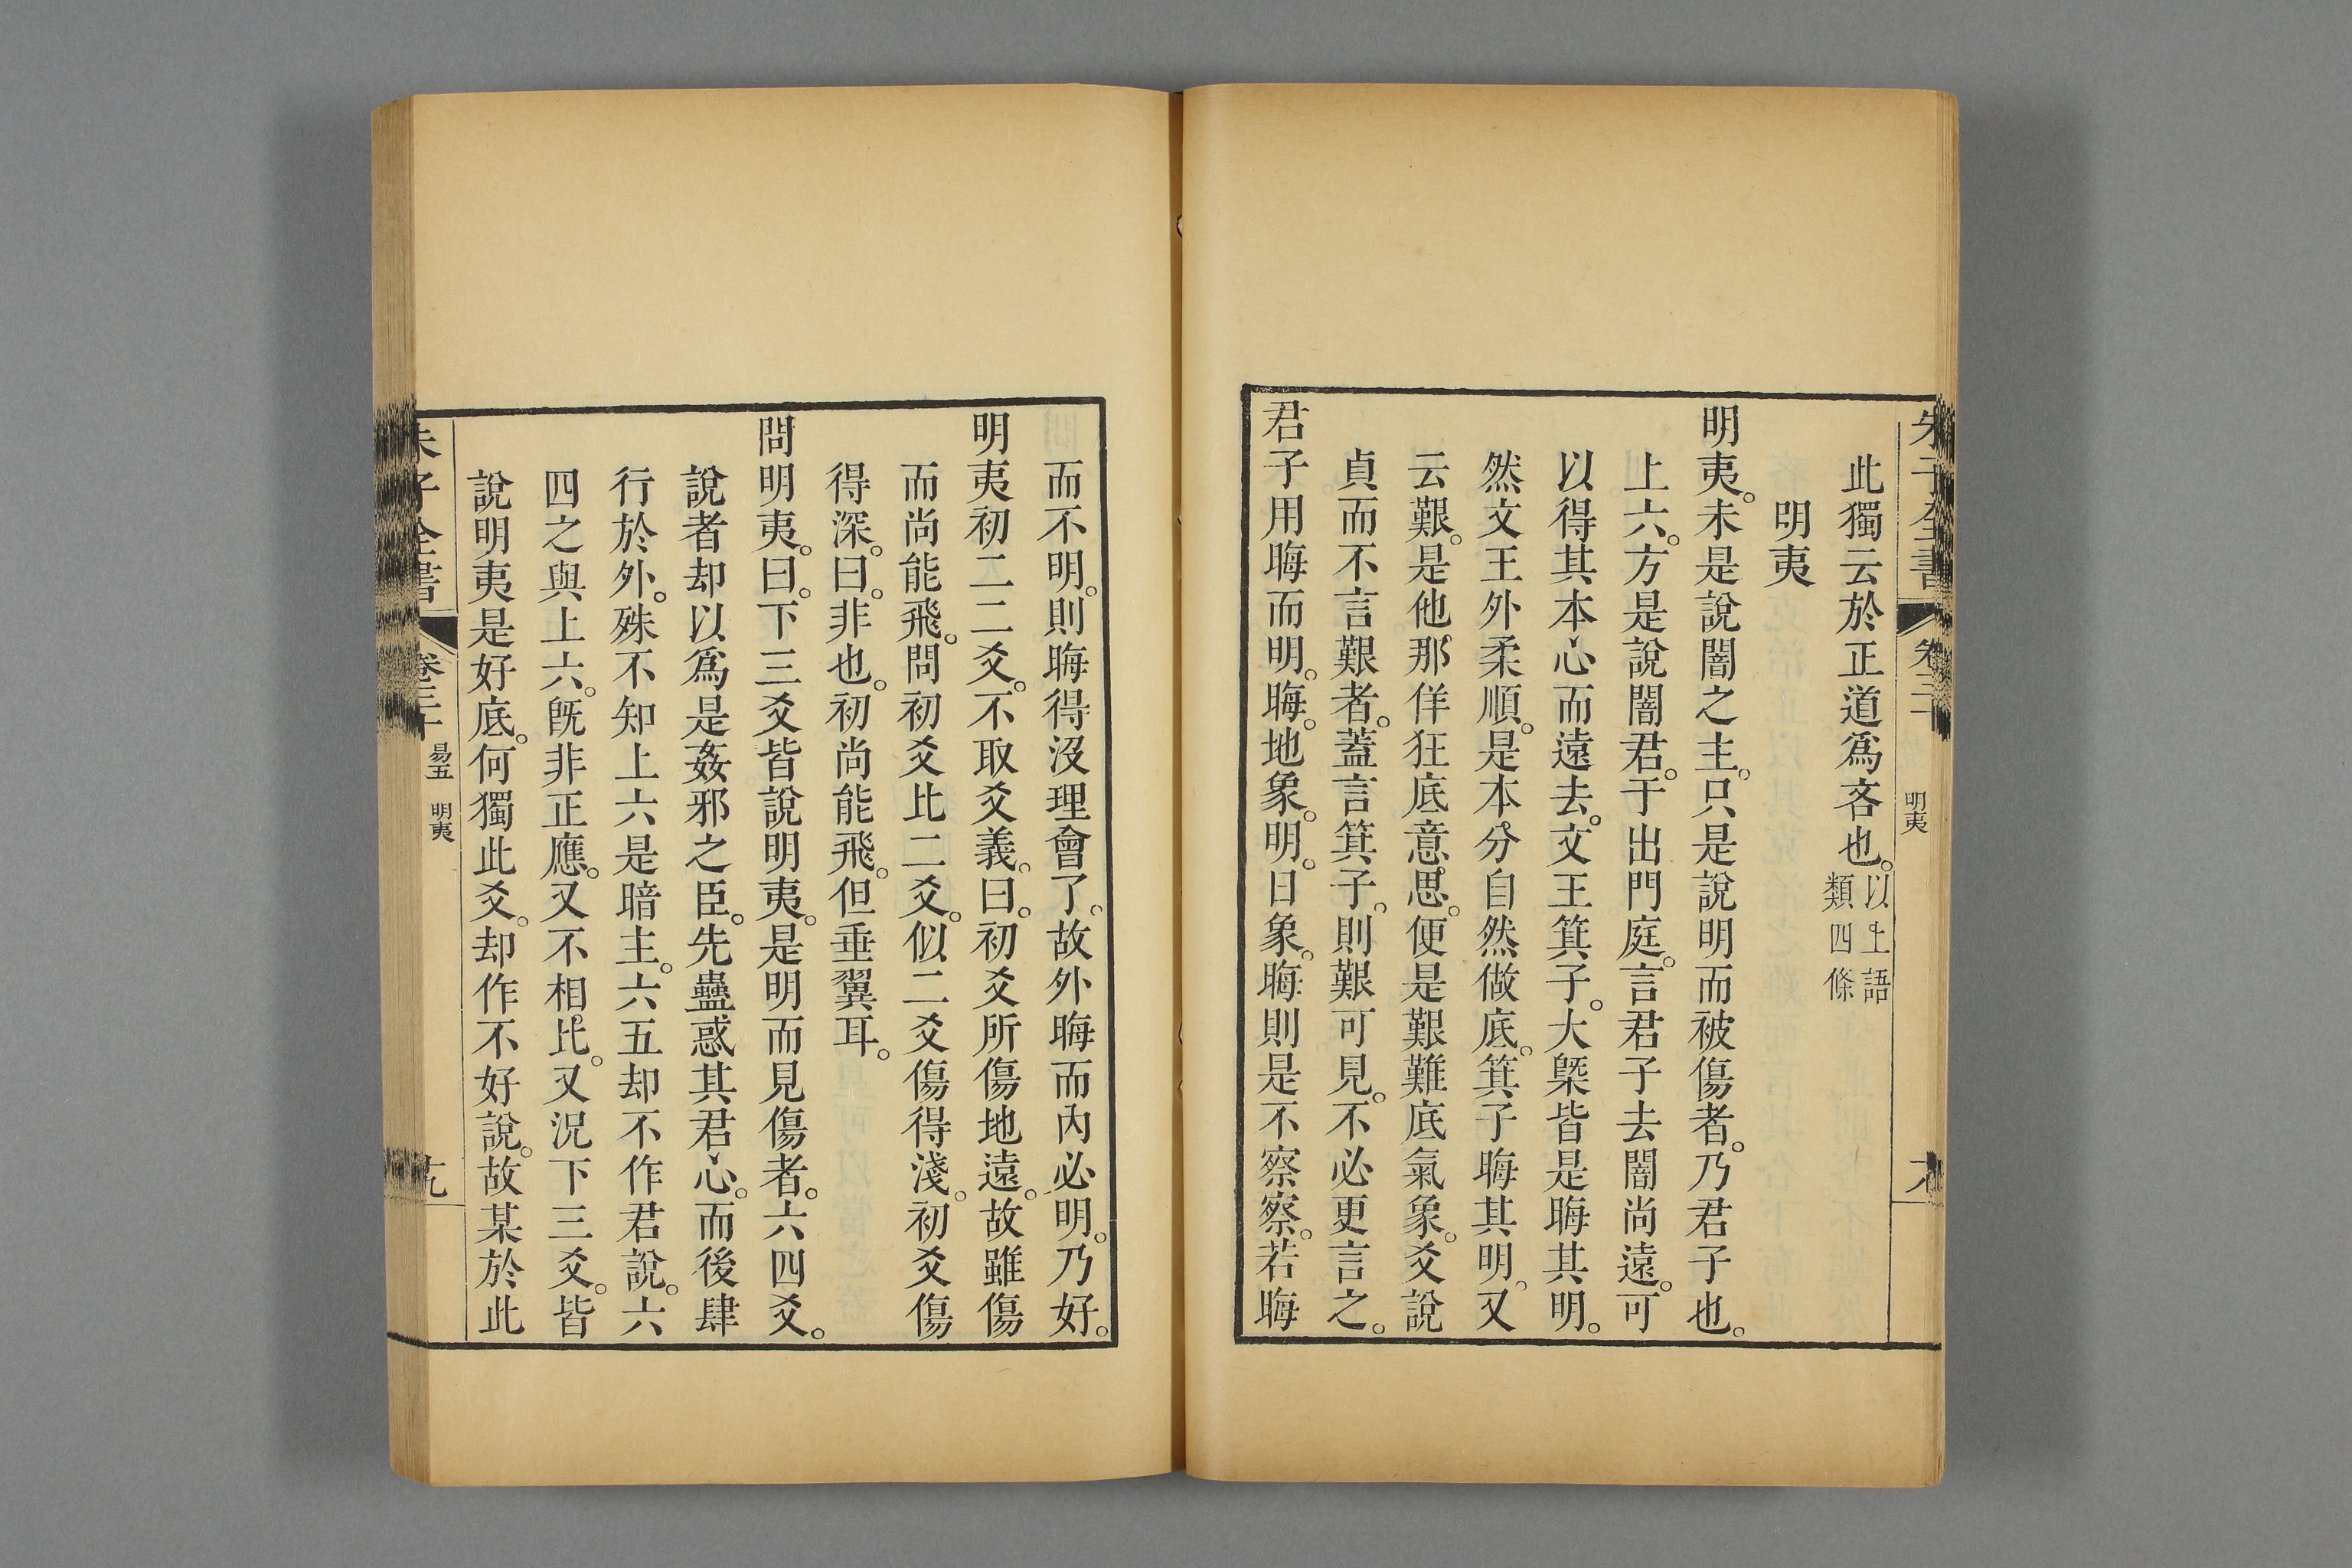 朱子全書 卷三十 明夷
此獨云於正道爲吝也。以上語類四條
明夷
明夷。未是說闇之主。只是說明而被傷者。乃君子也。
上六。方是說闇君。于出門庭。言君子去闇尚遠。可
以得其本心而遠去。文王箕子。大槩皆是晦其明。
然文王外柔順。是本分自然做底。箕子晦其明。又
云艱。是他那佯狂底意思。便是艱難底氣象。爻說
貞而不言艱者。蓋言箕子。則艱可見。不必更言之。
君子用晦而明。晦。地象。明。日象。晦則是不察察。若晦
而不明。則晦得沒理會了。故外晦而內必明。乃好。
明夷初二二爻。不取爻義。曰。初爻所傷地遠。故雖傷
而尚能飛。問初爻比二爻。似二爻傷得淺。初爻傷
得深。曰。非也。初尚能飛。但垂翼耳。
問明夷。曰。下三爻皆說明夷。是明而見傷者。六四爻。
說者却以爲是姦邪之臣。先蠱惑其君心。而後肆
行於外。殊不知上六是暗主。六五却不作君說。六
四之與上六。旣非正應。又不相比。又況下三爻。皆
說明夷是好底。何獨此爻。却作不好說。故某於此
朱子全書 卷三十 易五 明夷 十九